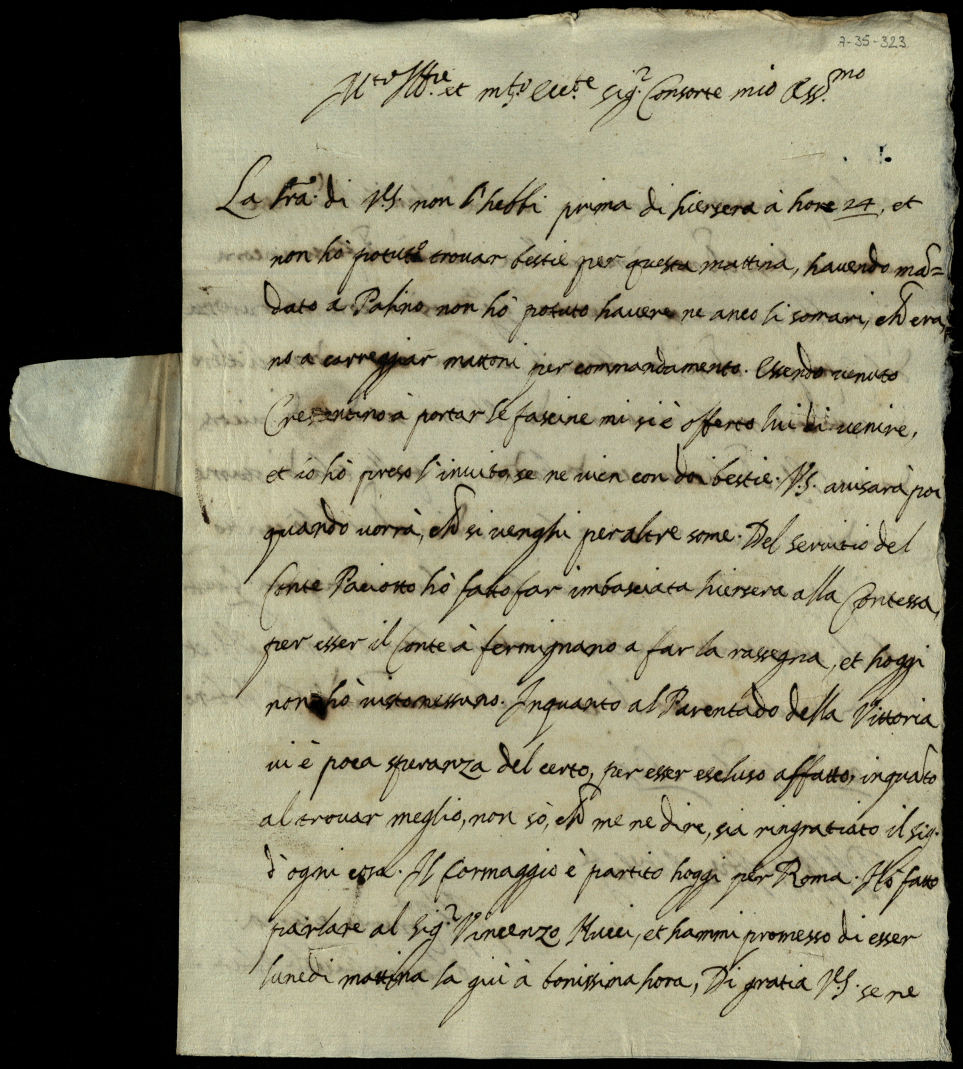 7-35-323
M.to Ill.re et m.to Ecc.te Sig.r Consorte mio Oss.mo
La lra. di V.S. non l'hebbi prima di hiersera à hore 24, et
non hò potuto trovar bestie per questa mattina, havendo mã=
dato a Palino non hò potuto havere ne anco li somari, ch̃ era,
no a carreggiar mattoni per commandamento. Essendo venuto
Cresentino à portar le fascine mi si è offerto lui di venire,
et iò hò preso l'invito, se ne vien con doi bestie. V.S. avisarà poi
quando vorrà, ch̃ si venghi per altre some. Del servitio del
Conte Paciotto hò fatto far imbasciata hiersera alla Contessa,
per esser il Conte à fermignano a far la rassegna, et hoggi
non hò visto nessuno. Inquanto al Parentado della Vittoria
vi è poca speranza del certo, per esser escluso affatto, inquãto
al trovar meglio, non sò, ch̃ me ne dire, sia ringratiato il Sig.
d'ogni cosa. Il formaggio è partito hoggi per Roma. Hò fatto
parlare al Sig.r Vincenzo Mucci, et hammi promesso di esser
lunedi mattina la giù à bonissima hora, Di gratia V.S. se ne